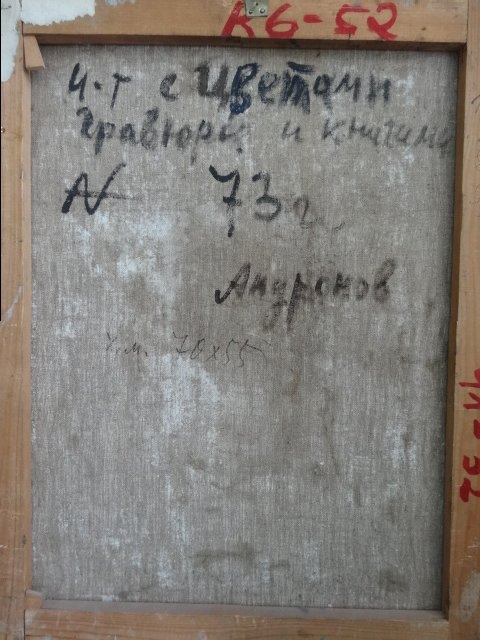 К6-52
Н-т с цветами
гравюры и книгами
N 73 г.
Андронов
х.м. 70х55